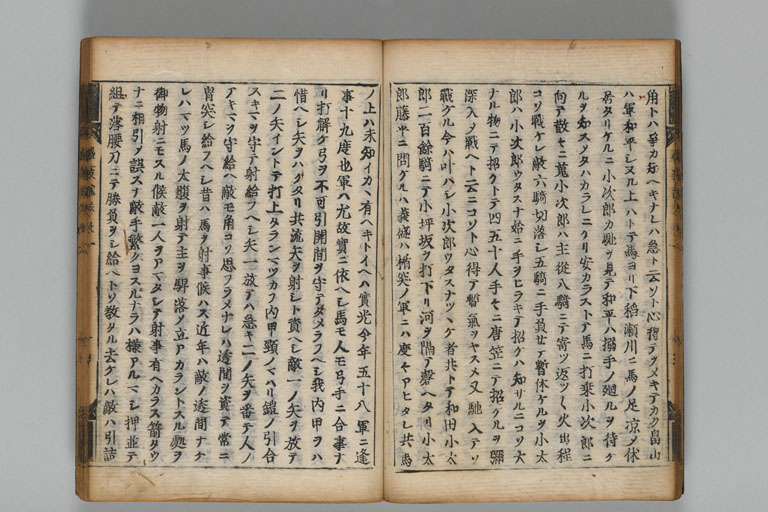 角トハ爭カ知ヘキナレハ急ト云ソト心得テヲメキテカク畠山
ハ軍和平シヌル上ハトテ馬ヨリ下稻瀬川ニ馬ノ足凉メ休
居タリケルニ小次郎カ馳ヲ見テ和平ハ搦手ノ廻ルヲ待ケ
ルヲ知スソタハカラレニケリ安カラストテ馬ニ打乗小次郎ニ
向テ散々ニ蒐小次郎ハ主從八騎ニテ寄ツ返ツ火出程
コソ戰ケレ敵六騎切落シ五騎ニ手負セテ暫休ケルヲ小太
郎ハ小次郎ウタスナ始ニ手ヲヒラキテ招ケハ知サルニコソ大
ナル物ニテ招クトテ四五十人手々ニ唐笠ニテ招ケルヲ彌
深入ヲ戰ヘト云ニコソト心得テ暫氣ヲヤスメ又馳入テソ
戰ケル今ハ叶ハシ小次郎ウタスナツヽケ者共トテ和田小太
郎一百餘騎ニテ小坪坂ヲ打下リ河ヲ隔テ磬ヘタリ小太
郎藤平ニ問ケルハ義盛ハ楯突ノ軍ニハ度々アヒタレ共馬
ノ上ハ未知イカヽ有ヘキトイヘハ實光今年五十八軍ニ逢
事十九度也軍ハ尤故實ニ依ヘシ馬モ人モ弓手ニ合事ナ
リ打解ケ弓ヲ不可引開間ヲ守テタメラフヘシ我内甲ヲハ
惜ヘシ矢ヲハケタリ共流矢ヲ射シト資ヘシ敵一ノ矢ヲ放テ
二ノ矢イントテ打上タランマツカフ内甲頸ノマハリ鎧ノ引合
スキマヲ守テ射給フヘシ矢一放テハ急キ二ノ矢ヲ番テ人ノ
アキマヲ守給ヘ敵モ角コソ思フラメナレハ透間ヲ資テ常ニ
冑突シ給フヘシ昔ハ馬ヲ射事候ハス近年ハ敵ノ透間ナケ
レハマツ馬ノ太腹ヲ射テ主ヲ駻落ノ立アカラントスル處ヲ
御物射ニモスル候敵一人ヲアマタシテ射事有ヘカラス箭タウ
ナニ相引ノ誤スナ敵手繁クヨスルナラハ様アルマシ押並テ
組テ落腰刀ニテ勝負ヲシ給ヘトソ教タル去ケレハ敵ハ引詰